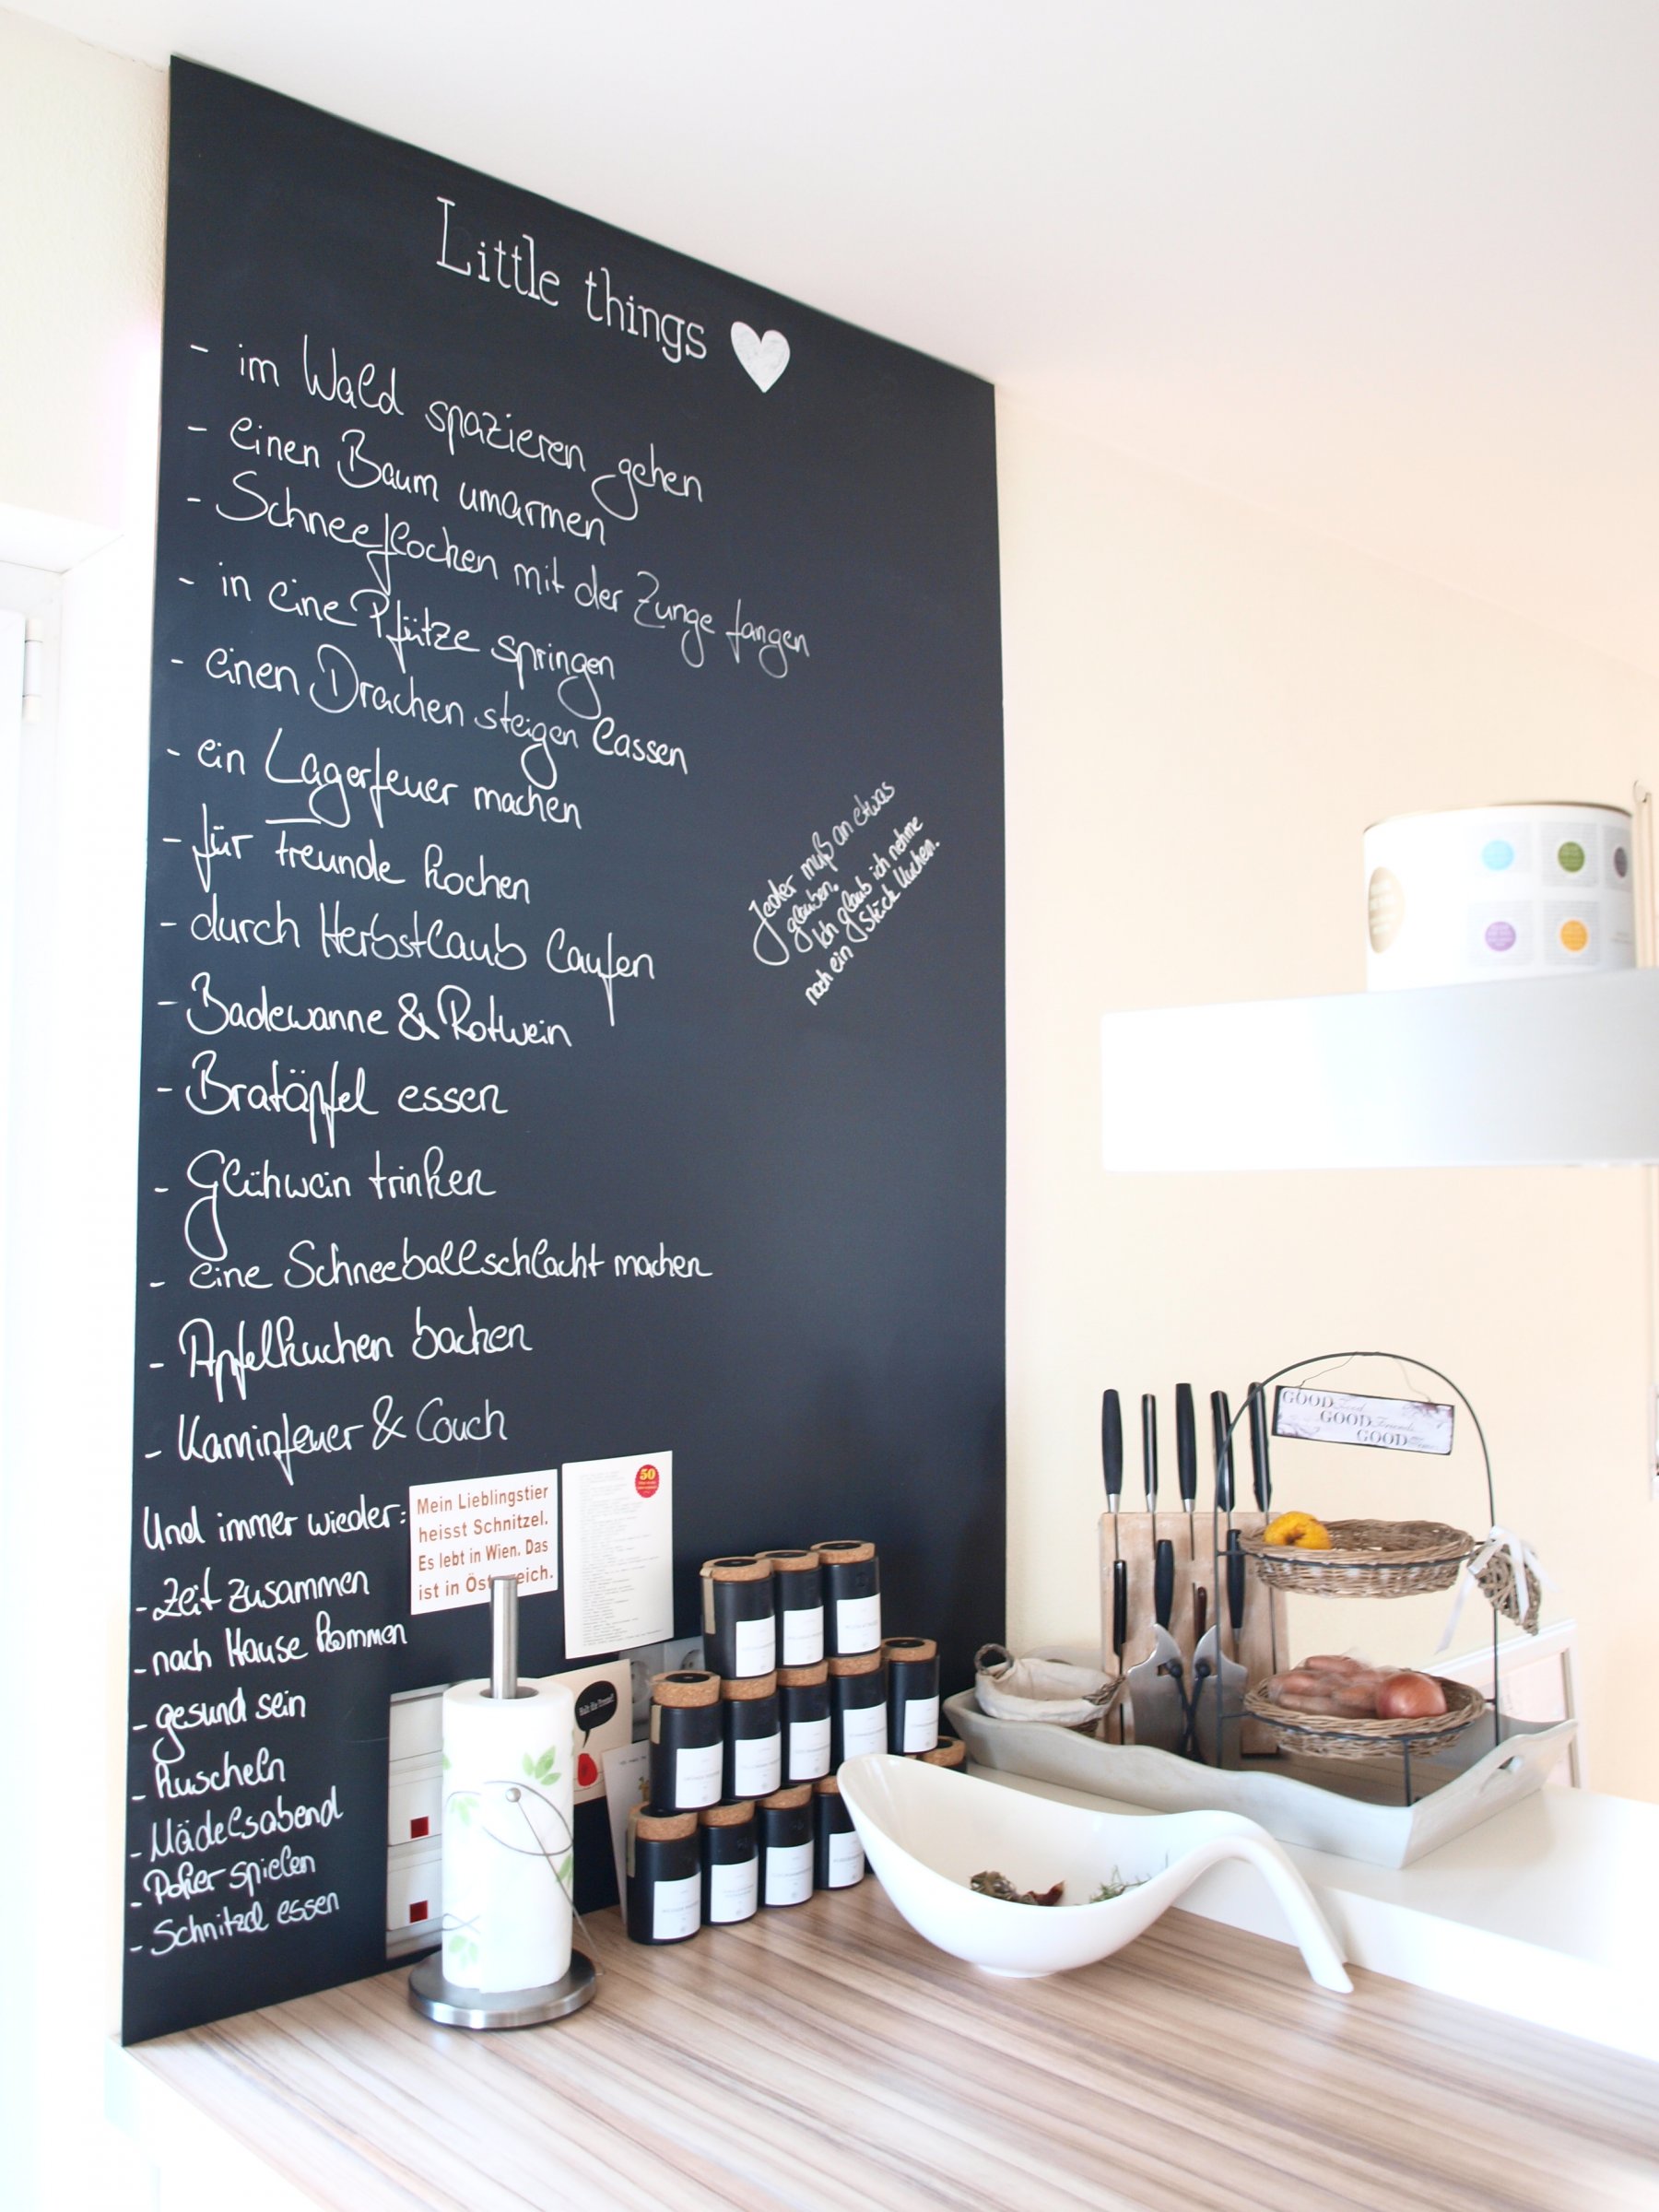 Little things
- im Wald spazieren gehen
- einen Baum umarmen
- Schneeflocken mit der Zunge fangen
- in eine Pfütze springen
- einen Drachen steigen lassen
- ein Lagerfeuer machen
- für Freunde kochen
- durch Herbstlaub laufen
- Badewanne & Rotwein
- Bratäpfel essen
- Glühwein trinken
- eine Schneeballschlacht machen
- Apfelkuchen backen
- Kaminfeuer & Couch
Und immer wieder:
- Zeit zusammen
- nach Hause kommen
- gesund sein
- kuscheln
- Mädelsabend
- Poker spielen
- Schnitzel essen
Jeder muß an etwas
glauben.
Ich glaub ich nehme
noch ein Stück Kuchen.
Mein Lieblingstier
heisst Schnitzel.
Es lebt in Wien. Das
ist in
50
GOOD Food
GOOD Friends
GOOD